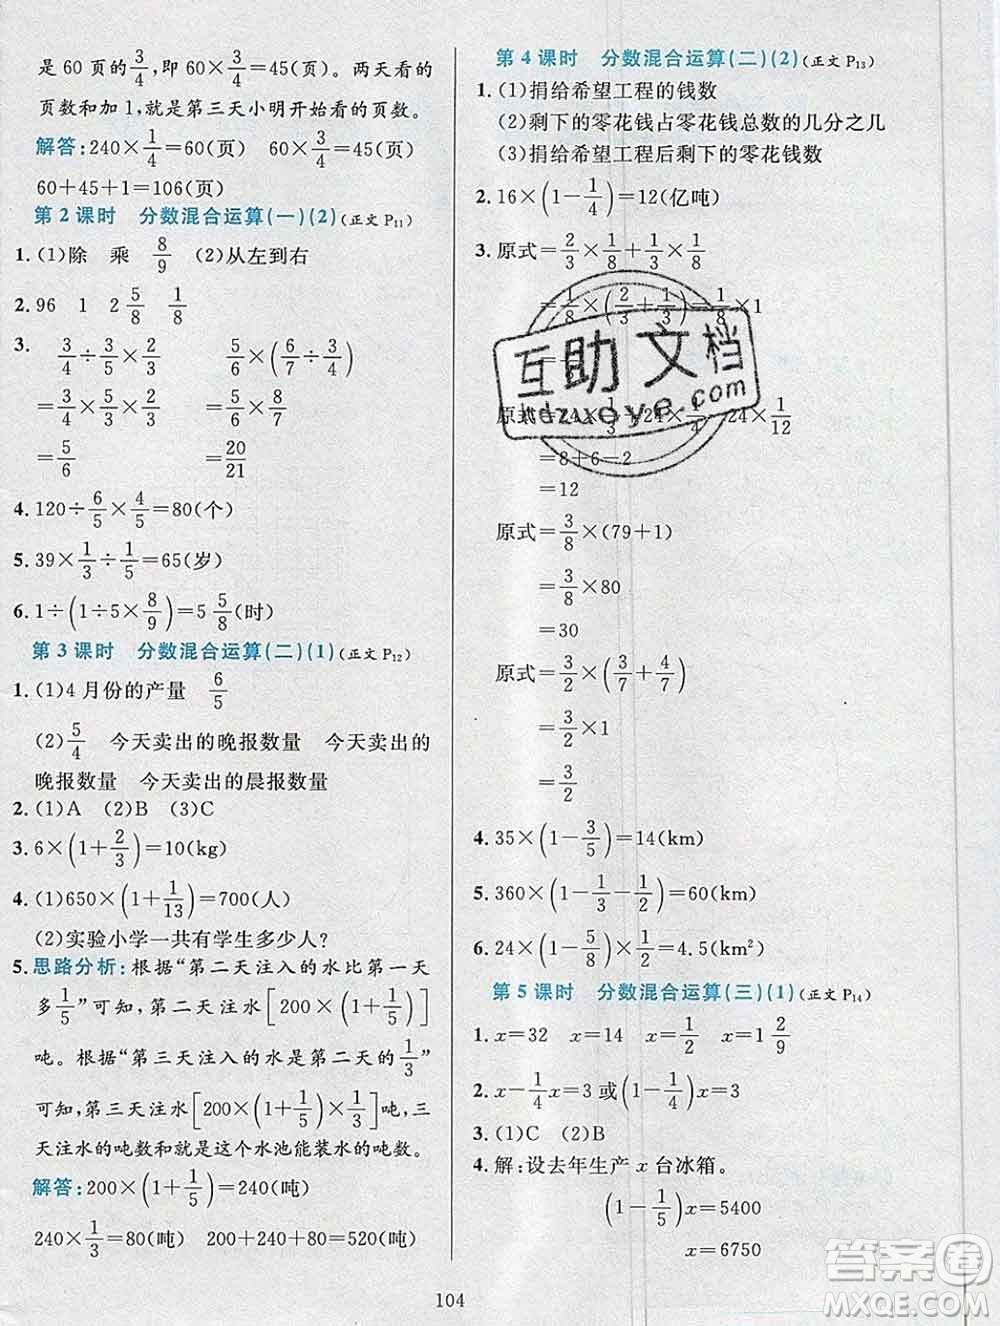 是 60 页的 3/4,即 60×3/4=45(页)。两天看的
页数和加 1,就是第三天小明开始看的页数。
解答:240×1/4=60(页) 60×3/4=45(页)
60+45+1=106(页)
第 2 课时 分数混合运算(一)(2)(正文 P11)
1. (1)除 乘 8/9 (2)从左到右
2. 96 1 2 5/8 1/8
3. 3/4÷3/2×2/3 5/6×(6/7÷3/4)
=3/4×2/3×2/3 =5/6×8/7
=5/6 =20/21
4. 120÷6/5×4/5=80(个)
5. 39×1/3÷1/5=65(岁)
6. 1÷(1÷5×8/9)=5 5/8(时)
第 3 课时 分数混合运算(二)(1)(正文 P12)
1. (1)4 月份的产量 6/5
(2)5/4 今天卖出的晚报数量 今天卖出的
晚报数量 今天卖出的晨报数量
2. (1)A (2)B (3)C
3. 6×(1+2/3)=10(kg)
4. (1)650×(1+1/13)=700(人)
(2)实验小学一共有学生多少人?
5. 思路分析:根据“第二天注入的水比第一天
多 1/5”可知,第二天注水[200×(1+1/5)]
吨。根据“第三天注入的水是第二天的 1/3”
可知,第三天注水[200×(1+1/5)×1/3],三
天注水的吨数和就是这个水池能装水的吨数。
解答:200×(1+1/5)=240(吨)
240×1/3=80(吨) 200+240+80=520(吨)
第 4 课时 分数混合运算(二)(2)(正文 P13)
1. (1)捐给希望工程的钱数
(2)剩下的零花钱占零花钱总数的几分之几
(3)捐给希望工程后剩下的零花钱数
2. 16×(1-1/4)=12(亿吨)
3. 原式=2/3×1/8+1/3×1/8
=1/8×(2/3+1/3)=1/8×1
互助文档
hdzuoye.com
原式=24×1/3+24×1/4-24×1/12
=8+6-2
=12
原式=3/8×(79+1)
=3/8×80
=30
原式=3/2×(3/7+4/7)
=3/2×1
=3/2
4. 35×(1-3/5)=14(km)
5. 360×(1-1/3-1/2)=60(km)
6. 24×(1-5/8)×1/2=4.5(km²)
第 5 课时 分数混合运算(三)(1)(正文 P14)
1. x=32 x=14 x=1/2 x=1 2/9
2. x-1/4x=3 或(1-1/4)x=3
3. (1)C (2)B
4. 解:设去年生产 x 台冰箱。
(1-1/5)x=5400
x=6750
104
答案圈
MXQE.COM